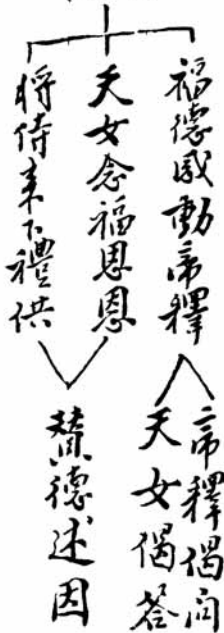 福德感動帝釋
帝釋偈问
天女偈荅
天女念福恩恩
将侍来下禮供
賛德述因